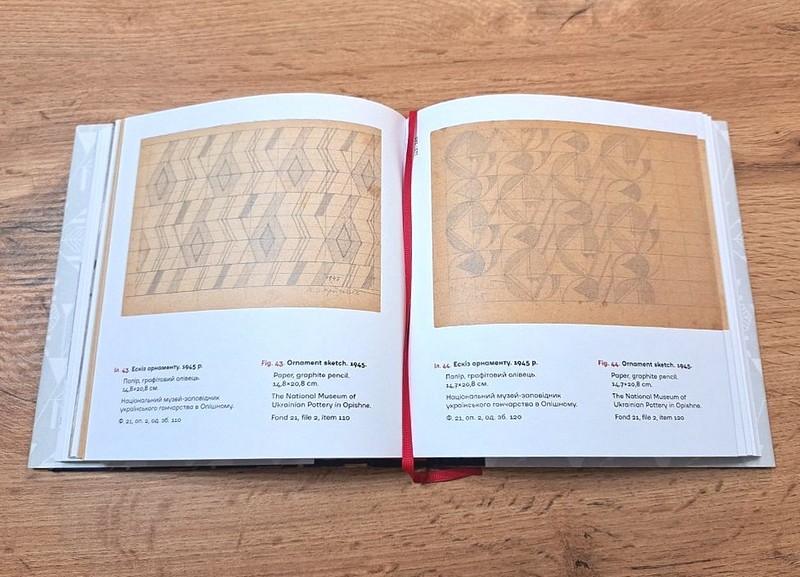 1945
Іл. 43. Ескіз орнаменту. 1945 р.
Папір, графітовий олівець.
14,8×20,8 см.
Національний музей-заповідник
українського гончарства в Опішному.
Ф. 21, оп. 2, од. зб. 110
Fig. 43. Ornament sketch. 1945.
Paper, graphite pencil.
14,8×20,8 cm.
The National Museum of
Ukrainian Pottery in Opishne.
Fond 21, file 2, item 110
Іл. 44. Ескіз орнаменту. 1945 р.
Папір, графітовий олівець.
14,7×20,8 см.
Національний музей-заповідник
українського гончарства в Опішному.
Ф. 21, оп. 2, од. зб. 120
Fig. 44. Ornament sketch. 1945.
Paper, graphite pencil.
14,7×20,8 cm.
The National Museum of
Ukrainian Pottery in Opishne.
Fond 21, file 2, item 120